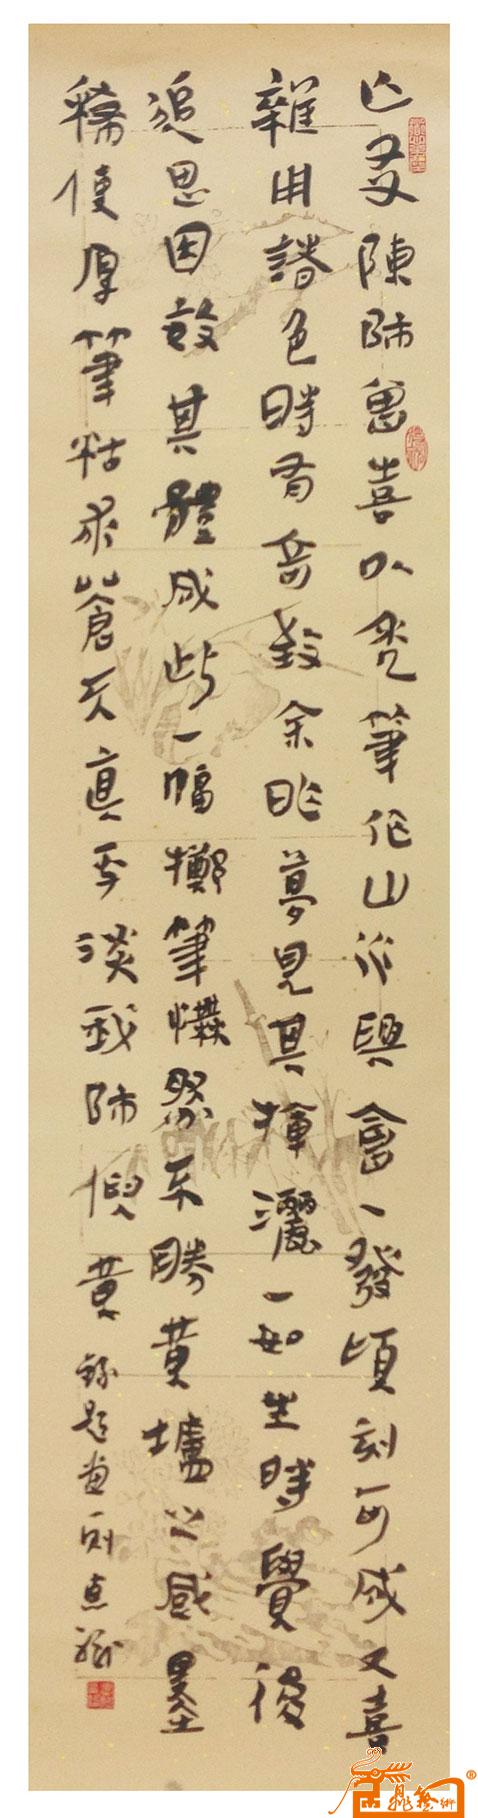 亡友陳師曾喜以禿筆作山水興會一發頃刻可成又喜
雜用諸色時有奇致余昨夢見其揮灑一如生時覺後
追思因效其體成此一幅擲筆慨然不勝黃壚之感墨
稀便厚筆枯求蒼天真平淡我師倪黃 錄題畫一則